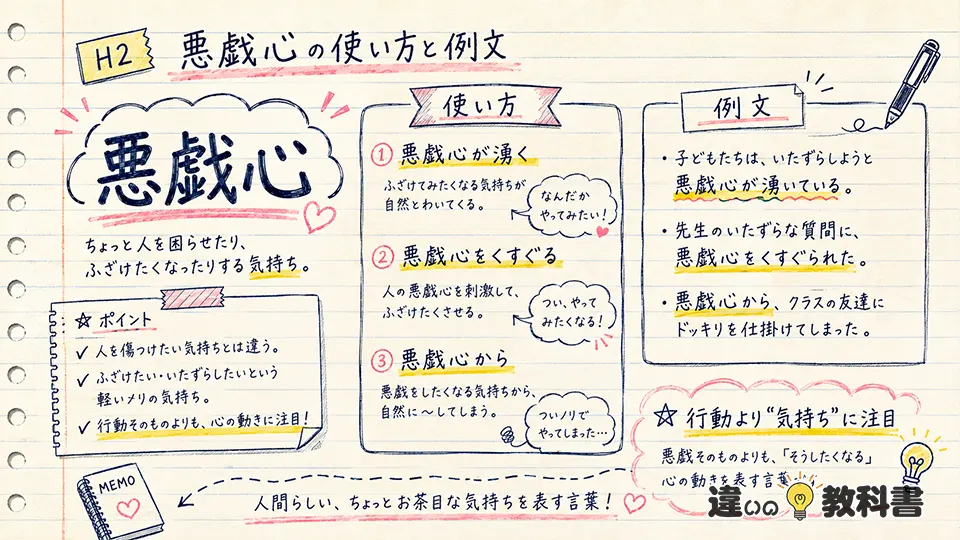 H2
悪戯心の使い方と例文
悪戯心
ちょっと人を困らせたり、
ふざけたくなったりする気持ち。
☆ ポイント
✓ 人を傷つけたい気持ちとは違う。
✓ ふざけたい・いたずらしたいという
軽いノリの気持ち。
✓ 行動そのものよりも、心の動きに注目！
MEMO
使い方
① 悪戯心が湧く
ふざけてみたくなる気持ちが
自然とわいてくる。
なんだか
やってみたい！
② 悪戯心をくすぐる
人の悪戯心を刺激して、
ふざけたくさせる。
つい、やって
みたくなる！
③ 悪戯心から
悪戯をしたくなる気持ちから、
自然に〜してしまう。
ついノリで
やってしまった…
例文
・子どもたちは、いたずらしようと
悪戯心が湧いている。
・先生のいたずらな質問に、
悪戯心をくすぐられた。
・悪戯心から、クラスの友達に
ドッキリを仕掛けてしまった。
☆ 行動より“気持ち”に注目
悪戯そのものよりも、「そうしたくなる」
心の動きを表す言葉
人間らしい、ちょっとお茶目な気持ちを表す言葉！
違いの教科書